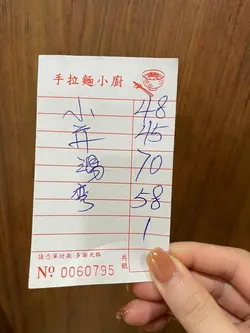 手拉麵小廚
小 48
弄 45
湯 70
彎 58
1
請憑單付款 多謝光臨
共銀
№ 0060795